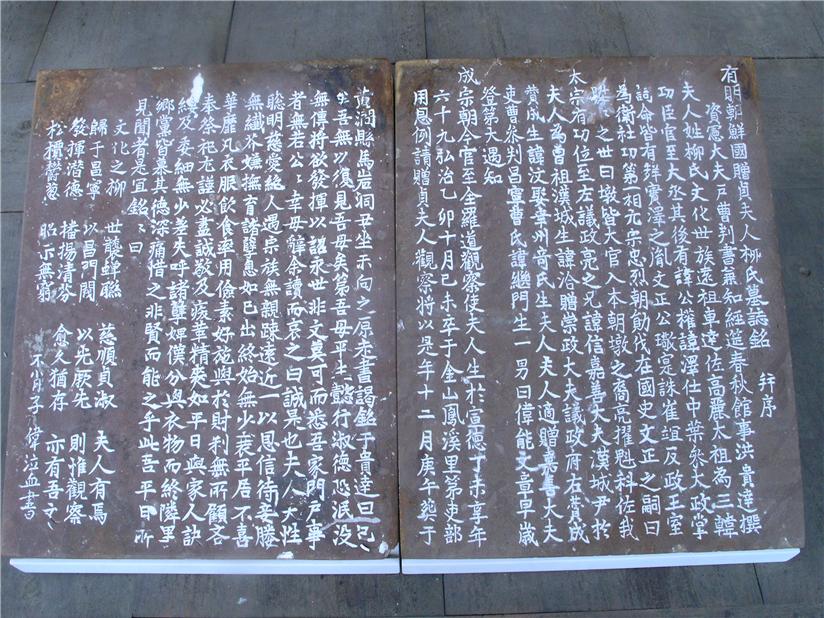 有明朝鮮國贈貞夫人柳氏墓誌銘 幷序
資憲大夫戶曹判書兼知經筵春秋館事洪貴達撰
夫人姓柳氏文化世族遠祖車達佐高麗太祖為三韓
功臣官至大丞其後有諱公權諱澤仕中葉參大政掌
誥命皆有鉾實澤之胤文正公璥寔誅崔竩反政王室
為衛社功第一相元宗忠烈朝勳伐在國史文正之嗣曰
陞之世曰墩皆大官入本朝墩之裔亮擢魁科佐我
太宗有功位至左議政亮之兄諱信嘉善大夫漢城尹於
夫人為曾祖漢城生諱洽贈崇政大夫議政府左贊成
贊成生諱汶娶幸州奇氏生夫人夫人適贈嘉善大夫
吏曹參判昌寧曹氏諱繼門生一男曰偉能文章早歲
登第大遇知
成宗朝今官至全羅道觀察使夫人生於宣德丁未享年
六十九弘治乙卯十月己未卒于金山鳳溪里第吏部
用恩例請贈貞夫人觀察將以是年十二月庚午葬于
黃澗縣馬岩洞丑坐未向之原走書謁銘于貴達曰已〻
生吾無以復見吾母矣第吾母平生懿行淑德恐泯没
無傳將欲發揮以詔永世非文莫可而悉吾家門戶事
者無若公〻幸毋辭余讀而哀之曰誠是也夫人大性
聡明慈裳絶人遇宗族無親疎遠近一以恩信待妾媵
無纖芥嫌撫育諸孽忽如己出終始無少衰平居不喜
華靡凡衣服飮食率用儉素好施與於財利無所顧吝
奉祭祀尤謹必盡誠敬及疾革精爽如平日與家人訣
縷及委細無少差失呼諸孽婢僕分與衣物而終隣里
鄉黨皆慕其德深痛惜之非賢而能之乎此吾平日所
見聞者是宜銘〻曰
文化之柳 世襲蟬聯 慈順貞淑 夫人有焉
歸于昌寧 以昌門閥 以先厥先 則惟觀察
發揮潛德 播揚清芬 愈久猶存 亦有吾文
松檟欝葱 昭示無窮
不肖子偉泣血書